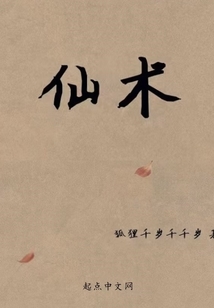 仙术
狐狸千岁千千岁
起点中文网